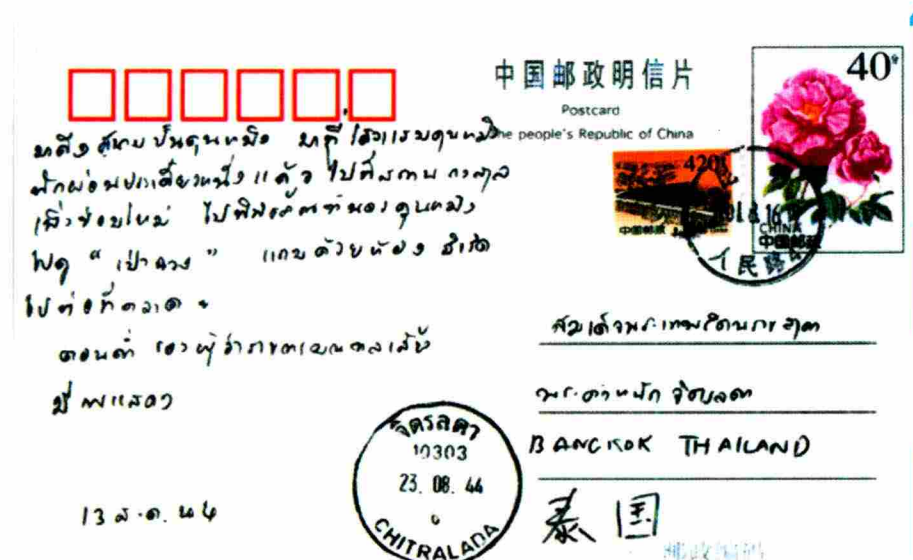 中国邮政明信片
Postcard
The people's Republic of China
40
420
中国邮政
CHINA
中国邮政
人民路
มาถึงสนามบินคุนหมิง มาที่โรงแรมคุนหมิง
พักผ่อนประเดี๋ยวหนึ่ง แล้วไปที่สถานกงสุล
เพิ่งซ่อมใหม่ ไปพิพิธภัณฑ์นครคุนหมิง
ไปดู "เป่า
ไปต่อที่ตลาด
ตอนค่ำ รองผู้ว่าราชการมณฑลเลี้ยง
มีการแสดง
13 ส.ค. ๒๔
สมเด็จพระเทพรัตนราชสุดา
พระตำหนัก จิตรลดา
BANGKOK THAILAND
泰国
จิตรลดา
10303
23. 08. 44
CHITRALADA